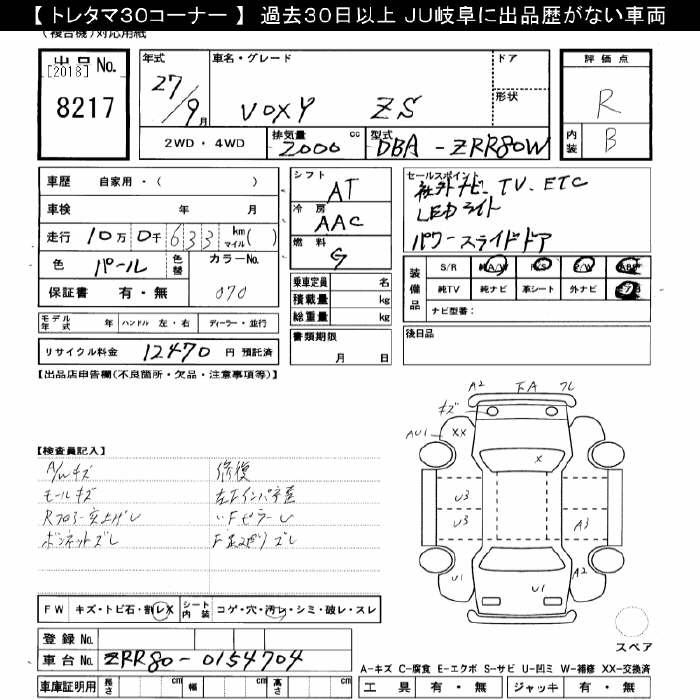 【 トレタマ30コーナー 】 過去30日以上 JU岐阜に出品歴がない車両
(複合機)対応用紙
出品No.
[2018]
8217
年式
27/9月
車名・グレード
VOXY ZS
ドア
形状
評価点
R
内装
B
2WD・4WD
排気量
2000 cc
型式
DBA-ZRR80W
車歴 自家用・( )
車検 年 月
走行 10万 0千 633 km マイル ( )
色 パール 色替 カラーNo.
保証書 有・無 070
シフト
AT
冷房
AAC
燃料
G
乗車定員 名
積載量 kg
総重量 kg
セールスポイント
社外ナビ、TV、ETC
LEDライト
パワースライドドア
装備品
S/R 純A/W P/S P/W ABS
純TV 純ナビ 革シート 外ナビ
ナビ型番:
モデル年式 年 ハンドル 左・右 ディーラー・並行
リサイクル料金 12470 円 預託済
書類期限
月 日
後日品
【出品店申告欄(不良箇所・欠品・注意事項等)】
【検査員記入】
A/Wキズ
モールキズ
ボンネットズレ
修復
A2
下A
フレ
キズ
AU1
XX
X
U3
U3
A3
U1
U1
A2
FW キズ・トビ石・割レ・X
シート内装 コゲ・穴・汚レ・シミ・破レ・スレ
スペア
登録No.
車台No. ZRR80-0154704
A-キズ C-腐食 E-エクボ S-サビ U-凹ミ W-補修 XX-交換済
車庫証明用 長さ cm 幅 cm 高さ cm
工具 有・無 ジャッキ 有・無